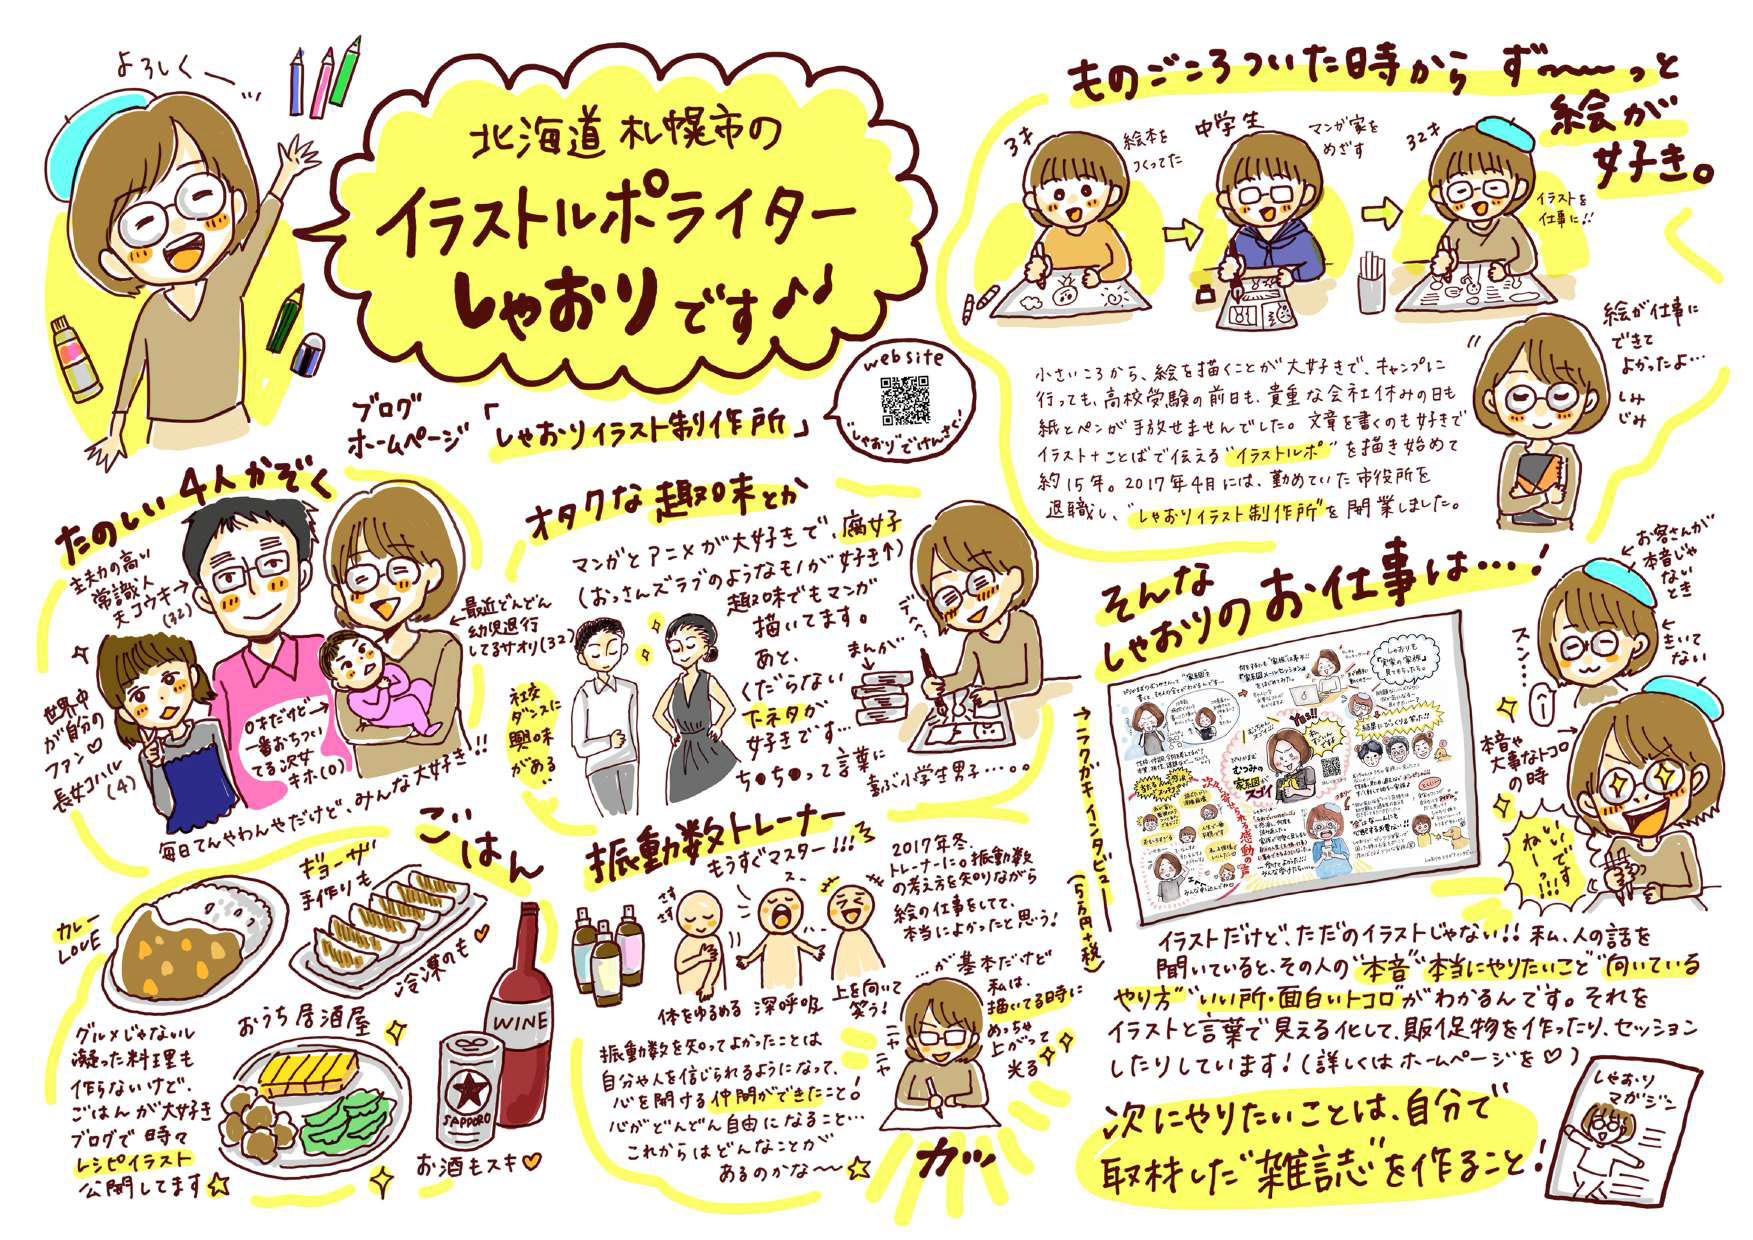 よろしくー
北海道 札幌市の
イラストルポライター
しゃおりです♪♩
website
"しゃおり"でけんさく
ブログ
ホームページ
「しゃおりイラスト制作所」
ものごころついた時から ず〜〜っと
絵が
好き。
3才
絵本を
つくってた
中学生
マンガ家を
めざす
32才
イラストを
仕事に!!
小さいころから、絵を描くことが大好きで、キャンプに
行っても、高校受験の前日も、貴重な会社休みの日も
紙とペンが手放せませんでした。文章を書くのも好きで
イラスト+ことばで伝える"イラストルポ"を描き始めて
約15年。2017年4月には、勤めていた市役所を
退職し、"しゃおりイラスト制作所"を開業しました。
絵が仕事に
できて
よかったよ…
しみ
じみ
たのしい4人かぞく
主夫力の高い
常識人
夫コウキ→
(32)
←最近どんどん
幼児退行
してるサオリ(32)
世界中
が自分の
ファン♡
長女コハル
(4)
0才だけど→
一番おちつい
てる次女
キホ(0)
毎日てんやわんやだけど、みんな大好き!!
オタクな趣味とか
マンガとアニメが大好きで、腐女子
(おっさんズラブのようなモノが好き↑)
趣味でもマンガ
描いてます。
あと、
くだらない
下ネタが
好きです…
ち●ち●って言葉に
喜ぶ小学生男子…。。
社交
ダンスに
興味
がある
まんが
ごはん
カレー
LOVE
ギョーザ
手作りも
冷凍のも♡
グルメじゃないし
凝った料理も
作らないけど、
ごはんが大好き
ブログで時々
レシピイラスト
公開してます☆
おうち居酒屋
WINE
SAPPORO
お酒もスキ♡
振動数トレーナー
もうすぐマスター!!!
さす
さす
体をゆるめる
深呼吸
上を向いて
笑う!
2017年冬、
トレーナーに。振動数
の考え方を知りながら
絵の仕事をしてて、
本当によかったと思う!
…が基本だけど
私は、
描いてる時に
めっちゃ
上がって
光る
ニヤ
ニヤ
カッ
振動数を知ってよかったことは
自分や人を信じられるようになって、
心を開ける仲間ができたこと!
心がどんどん自由になること…
これからはどんなことが
あるのかな〜☆
そんな
しゃおりのお仕事は…!
→ラクガキインタビュー→
(5万円+税)
むつみの
家系図が
スゴイ
Yes!!
お客さんが
本音じゃ
ない
とき
きいて
ない
スン…
本音や
大事なトコロ→
の時
いい
ですねー!!!
イラストだけど、ただのイラストじゃない!! 私、人の話を
聞いていると、その人の"本音""本当にやりたいこと""向いている
やり方""いい所・面白いトコロ"がわかるんです。それを
イラストと言葉で見える化して、販促物を作ったり、セッション
したりしています!(詳しくはホームページを♡)
次にやりたいことは、自分で
取材した"雑誌"を作ること!
しゃおり
マガジン